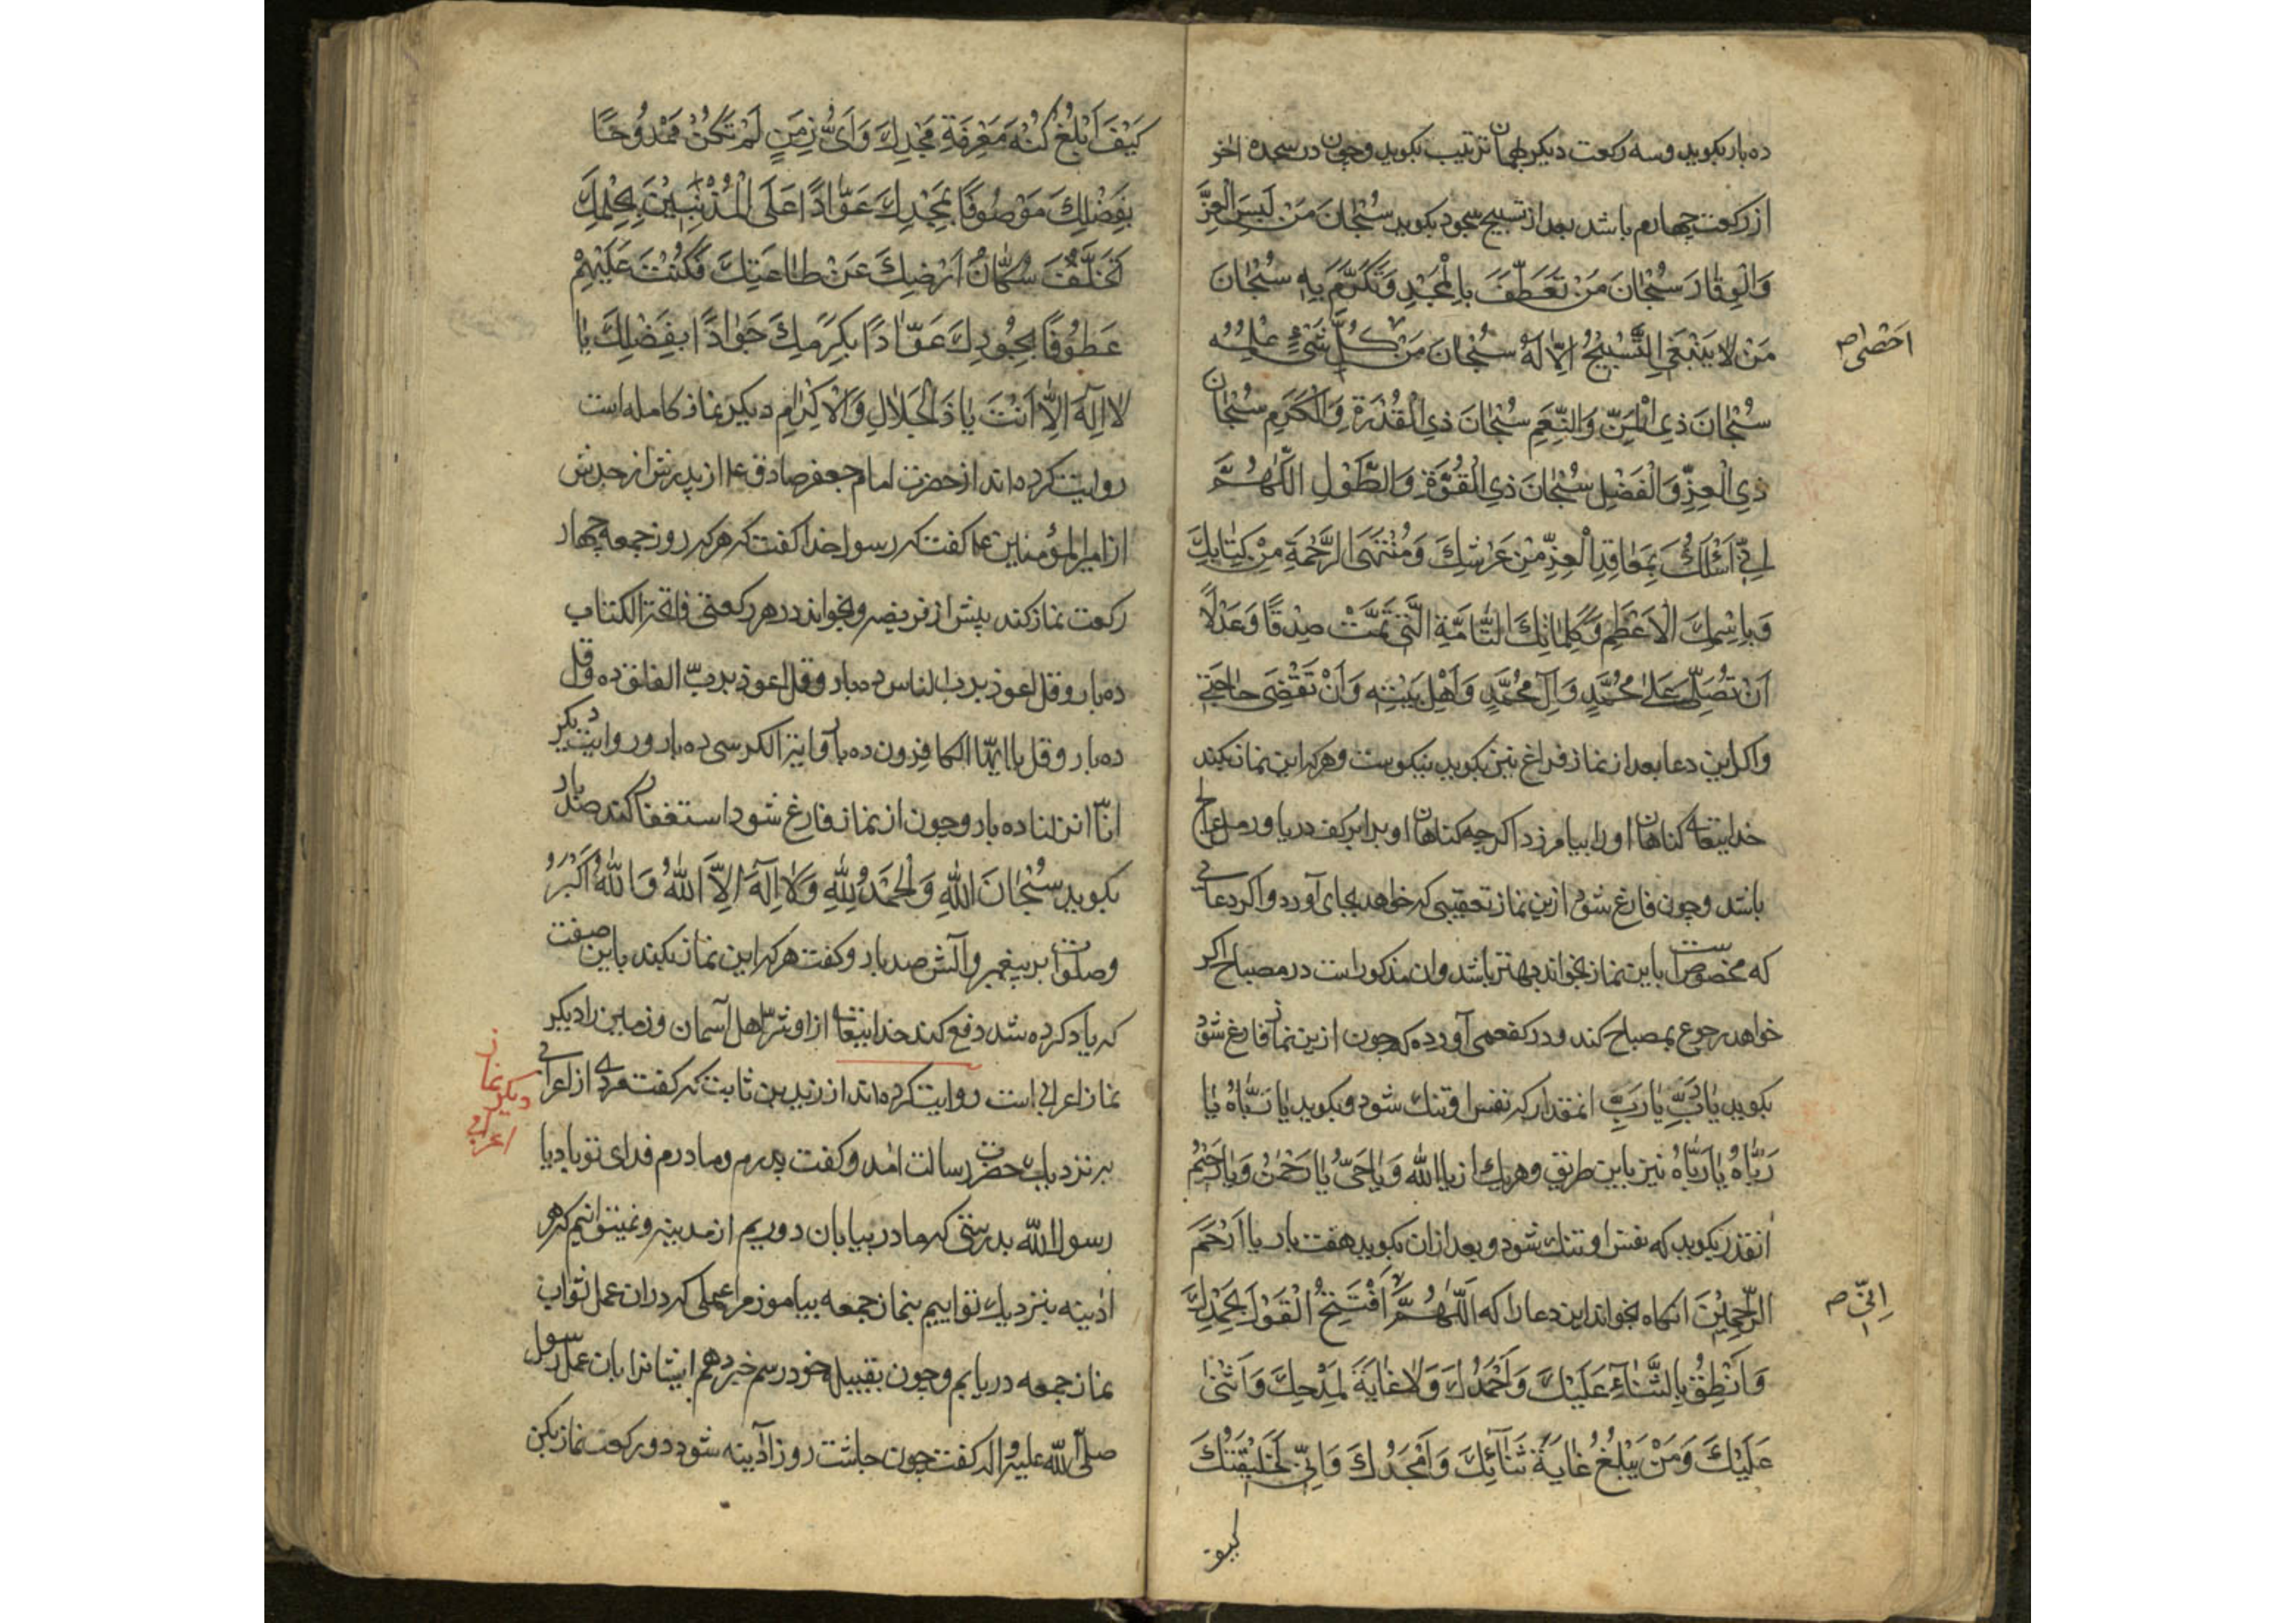 ده بار بکوید و سه رکعت دیکر بهمان ترتیب بکوید و چون در سجده اخر
از رکعت چهارم باشد بعد از تسبیح سجود بکوید سُبْحَانَ مَنْ لَبِسَ الْعِزَّ
وَالْوِقَارَ سُبْحَانَ مَنْ تَعَطَّفَ بِالْمَجْدِ وَتَكَرَّمَ بِهِ سُبْحَانَ
مَنْ لَا يَنْبَغِي التَّسْبِيحُ اِلَّا لَهُ سُبْحَانَ مَنْ كُلَّ شَيْءٍ عِلْمُهُ
احْصٰى ص
سُبْحَانَ ذِي الْمَنِّ وَالنِّعَمِ سُبْحَانَ ذِي الْقُدْرَةِ وَالْكَرَمِ سُبْحَانَ
ذِي الْعِزِّ وَالْفَضْلِ سُبْحَانَ ذِي الْقُوَّةِ وَالطَّوْلِ اللّٰهُمَّ
اِنِّي اَسْئَلُكَ بِمَعَاقِدِ الْعِزِّ مِنْ عَرْشِكَ وَمُنْتَهَى الرَّحْمَةِ مِنْ كِتَابِكَ
وَبِاسْمِكَ الْاَعْظَمِ وَكَلِمَاتِكَ التَّامَّةِ الَّتِي تَمَّتْ صِدْقًا وَعَدْلًا
اَنْ تُصَلِّيَ عَلٰى مُحَمَّدٍ وَآلِ مُحَمَّدٍ وَاَهْلِ بَيْتِهِ وَاَنْ تَقْضِيَ حَاجَتِي
واکر این دعا بعد از نماز فراغ نیز بکوید نیکوست و هرکه این نماز بکند
خدایتعالی کناهان او را بیامرزد اکرچه کناهان او برابر کف دریا و رمل عالج
باشد و چون فارغ شود ازین نماز تعقیبی که خواهد بجای آورد و اکر دعائی
که مخصوص است باین نماز بخواند بهتر باشد و ان مذکور است در مصباح اکر
خواهد رجوع بمصباح کند و در کفعمی آورده که چون ازین نماز فارغ شود
بکوید یَا رَبِّ یَا رَبِّ انمقدار که نفس او تنک شود و بکوید یَا رَبَّاهُ یَا
رَبَّاهُ یَا رَبَّاهُ نیز باین طریق و هریک از یا الله وَیَا حَیُّ یَا رَحْمٰنُ وَیَا رَحِیمُ
انقدر بکوید که نفس او تنک شود و بعد از ان بکوید هفت بار یا اَرْحَمَ
الرَّاحِمِیْنَ انکاه بخواند این دعا را که اَللّٰهُمَّ اَفْتَتِحُ الْقَوْلَ بِحَمْدِكَ
اِنِّي ص
وَاَنْطِقُ بِالثَّنَاءِ عَلَيْكَ وَاَحْمَدُكَ وَلَا غَايَةَ لِمَدْحِكَ وَاُثْنِي
عَلَيْكَ وَمَنْ يَبْلُغُ غَايَةَ ثَنَائِكَ وَاَمْجَدُكَ وَاَنّٰى لِخَلِيْقَتِكَ
کیف
كَيْفَ اَبْلُغُ كُنْهَ مَعْرِفَةِ مَجْدِكَ وَاَيُّ زَمَنٍ لَمْ تَكُنْ مَمْدُوحًا
بِفَضْلِكَ مَوْصُوفًا بِمَجْدِكَ عَوَّادًا عَلَى الْمُذْنِبِيْنَ بِحِلْمِكَ
تَخَلَّفَ سُكَّانُ اَرْضِكَ عَنْ طَاعَتِكَ فَكُنْتَ عَلَيْهِمْ
عَطُوفًا بِجُودِكَ عَوَّادًا بِكَرَمِكَ جَوَادًا بِفَضْلِكَ يَا
لَا اِلٰهَ اِلَّا اَنْتَ يَا ذَالْجَلَالِ وَالْاِكْرَامِ دیکر نماز کامله است
روایت کرده اند از حضرت امام جعفر صادق ع از پدرش از جدش
از امیرالمؤمنین ع که کفت که رسول خدا کفت که هرکه روز جمعه چهار
رکعت نماز کند پیش از فریضه و بخواند در هر رکعتی فاتحة الکتاب
ده بار و قل اعوذ برب الناس ده بار و قل اعوذ بربّ الفلق ده و قل
ده بار و قل یا ایّها الکافرون ده بار و ایة الکرسی ده بار و روایت دیکر
انّا انزلنا ده بار و چون از نماز فارغ شود استغفار کند صد بار
بکوید سُبْحَانَ اللّٰهِ وَالْحَمْدُ لِلّٰهِ وَلَا اِلٰهَ اِلَّا اللّٰهُ وَاللّٰهُ اَكْبَرُ
و صلوات بر پیغمبر و آلش صد بار و کفت هرکه این نماز بکند باین صفت
که یاد کرده شد دفع کند خدایتعالی از او شرّ اهل آسمان و زمین را دیکر
نماز اعرابی است روایت کرده اند از زید بن ثابت که کفت مردی از اعرابی
دیکر نماز اعرابی
بر نزدیک حضرت رسالت امد و کفت پدرم و مادرم فدای تو باد یا
رسول الله بدرستی که ما در بیابان دوریم از مدینه و نمیتوانیم که هر
ادینه بنزدیک تو اییم بنماز جمعه بیاموز مرا عملی که در ان عمل ثواب
نماز جمعه دریابم و چون بقبیله خود رسم خبر دهم ایشانرا بان عمل رسول
صلّی الله علیه و اله کفت چون چاشت روز آدینه شود دو رکعت نماز بکن